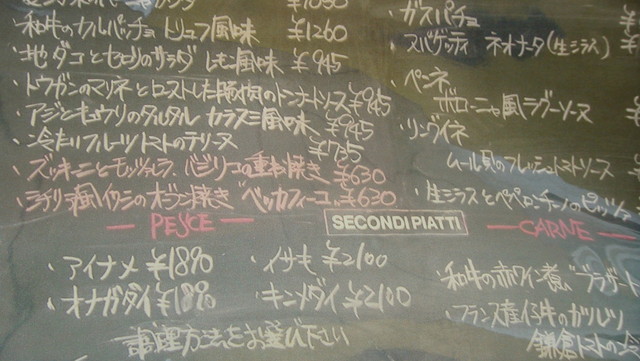 ¥1050
・和牛のカルパッチョ トリュフ風味 ¥1260
・地ダコとセロリのサラダ レモン風味 ¥945
・トウガンのマリネとローストした豚肉のトンナートソース ¥945
・アジとキュウリのタルタル カラスミ風味 ¥945
・冷たいフルーツトマトのテリーヌ ¥735
・ズッキーニとモッツァレラ、バジリコの重ね焼き ¥630
・シチリア風イワシのオーブン焼き "ベッカフィーコ" ¥630
・ガスパチョ
・スパゲッティ ネオナータ(生シラス)
・ペンネ
ボローニャ風ラグーソース
・リングイネ
ムール貝のフレッシュトマトソース
・生シラスとペペロンチーノのピッツァ
PESCE
SECONDI PIATTI
CARNE
・アイナメ ¥1890
・イサキ ¥2100
・オナガダイ ¥1890
・キンメダイ ¥2100
調理方法をお選び下さい
・和牛の赤ワイン煮込
・フランス産仔牛のグリル
鎌倉トマトの